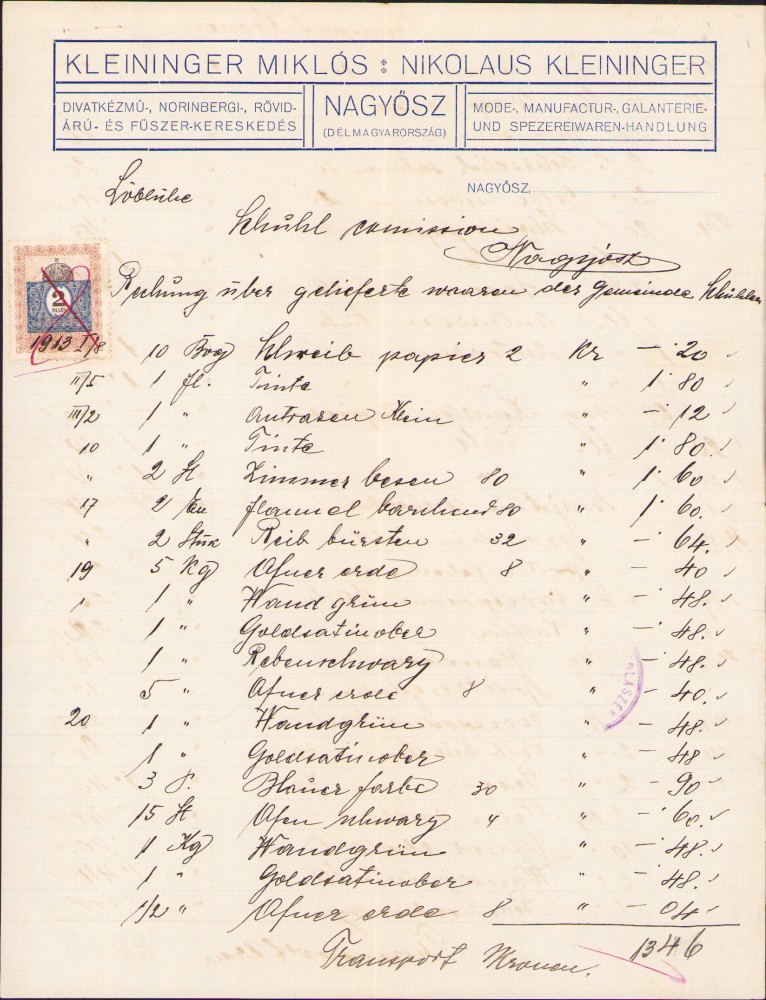 KLEININGER MIKLÓS : NIKOLAUS KLEININGER
DIVATKÉZMŰ-, NORINBERGI-, RÖVID-
ÁRÚ- ÉS FŰSZER-KERESKEDÉS
NAGYŐSZ
(DÉLMAGYARORSZÁG)
MODE-, MANUFACTUR-, GALANTERIE-
UND SPEZEREIWAREN-HANDLUNG
NAGYŐSZ,
Löbliche
Schuhl comission
Nagyősz
2
1913 I/8
Rechung über gelieferte waaren der Gemeinde Schuhlen
10 Bog Schreib papier 2 Kr — · 20
II/5 1 fl. Tinte " 1 · 80
III/2 1 " Antrasen Klein " — · 12
10 1 " Tinte " 1 · 80.
" 2 St Zimmer besen 80 " 1 · 60
17 2 flannel 80 " 1 · 60.
" 2 Stük Reib bürsten 32 " — · 64.
19 5 Kg Ofner erde 8 " — 40
1 " Wand grün " — · 48.
1 " Goldsatinober " — · 48.
1 " Rebenschwarz " — · 48.
5 " Ofner erde 8 " — · 40.
20 1 " Wandgrün " — · 48.
1 " Goldsatinober " — · 48
3 P. Blauer farbe 30 " — · 90
15 St Ofen schwarz 4 " — · 60.
1 Kg Wandgrün " — · 48.
1 " Goldsatinober " — · 48.
1/2 " Ofner erde 8 " — 04
Transport Kronen. 13 46